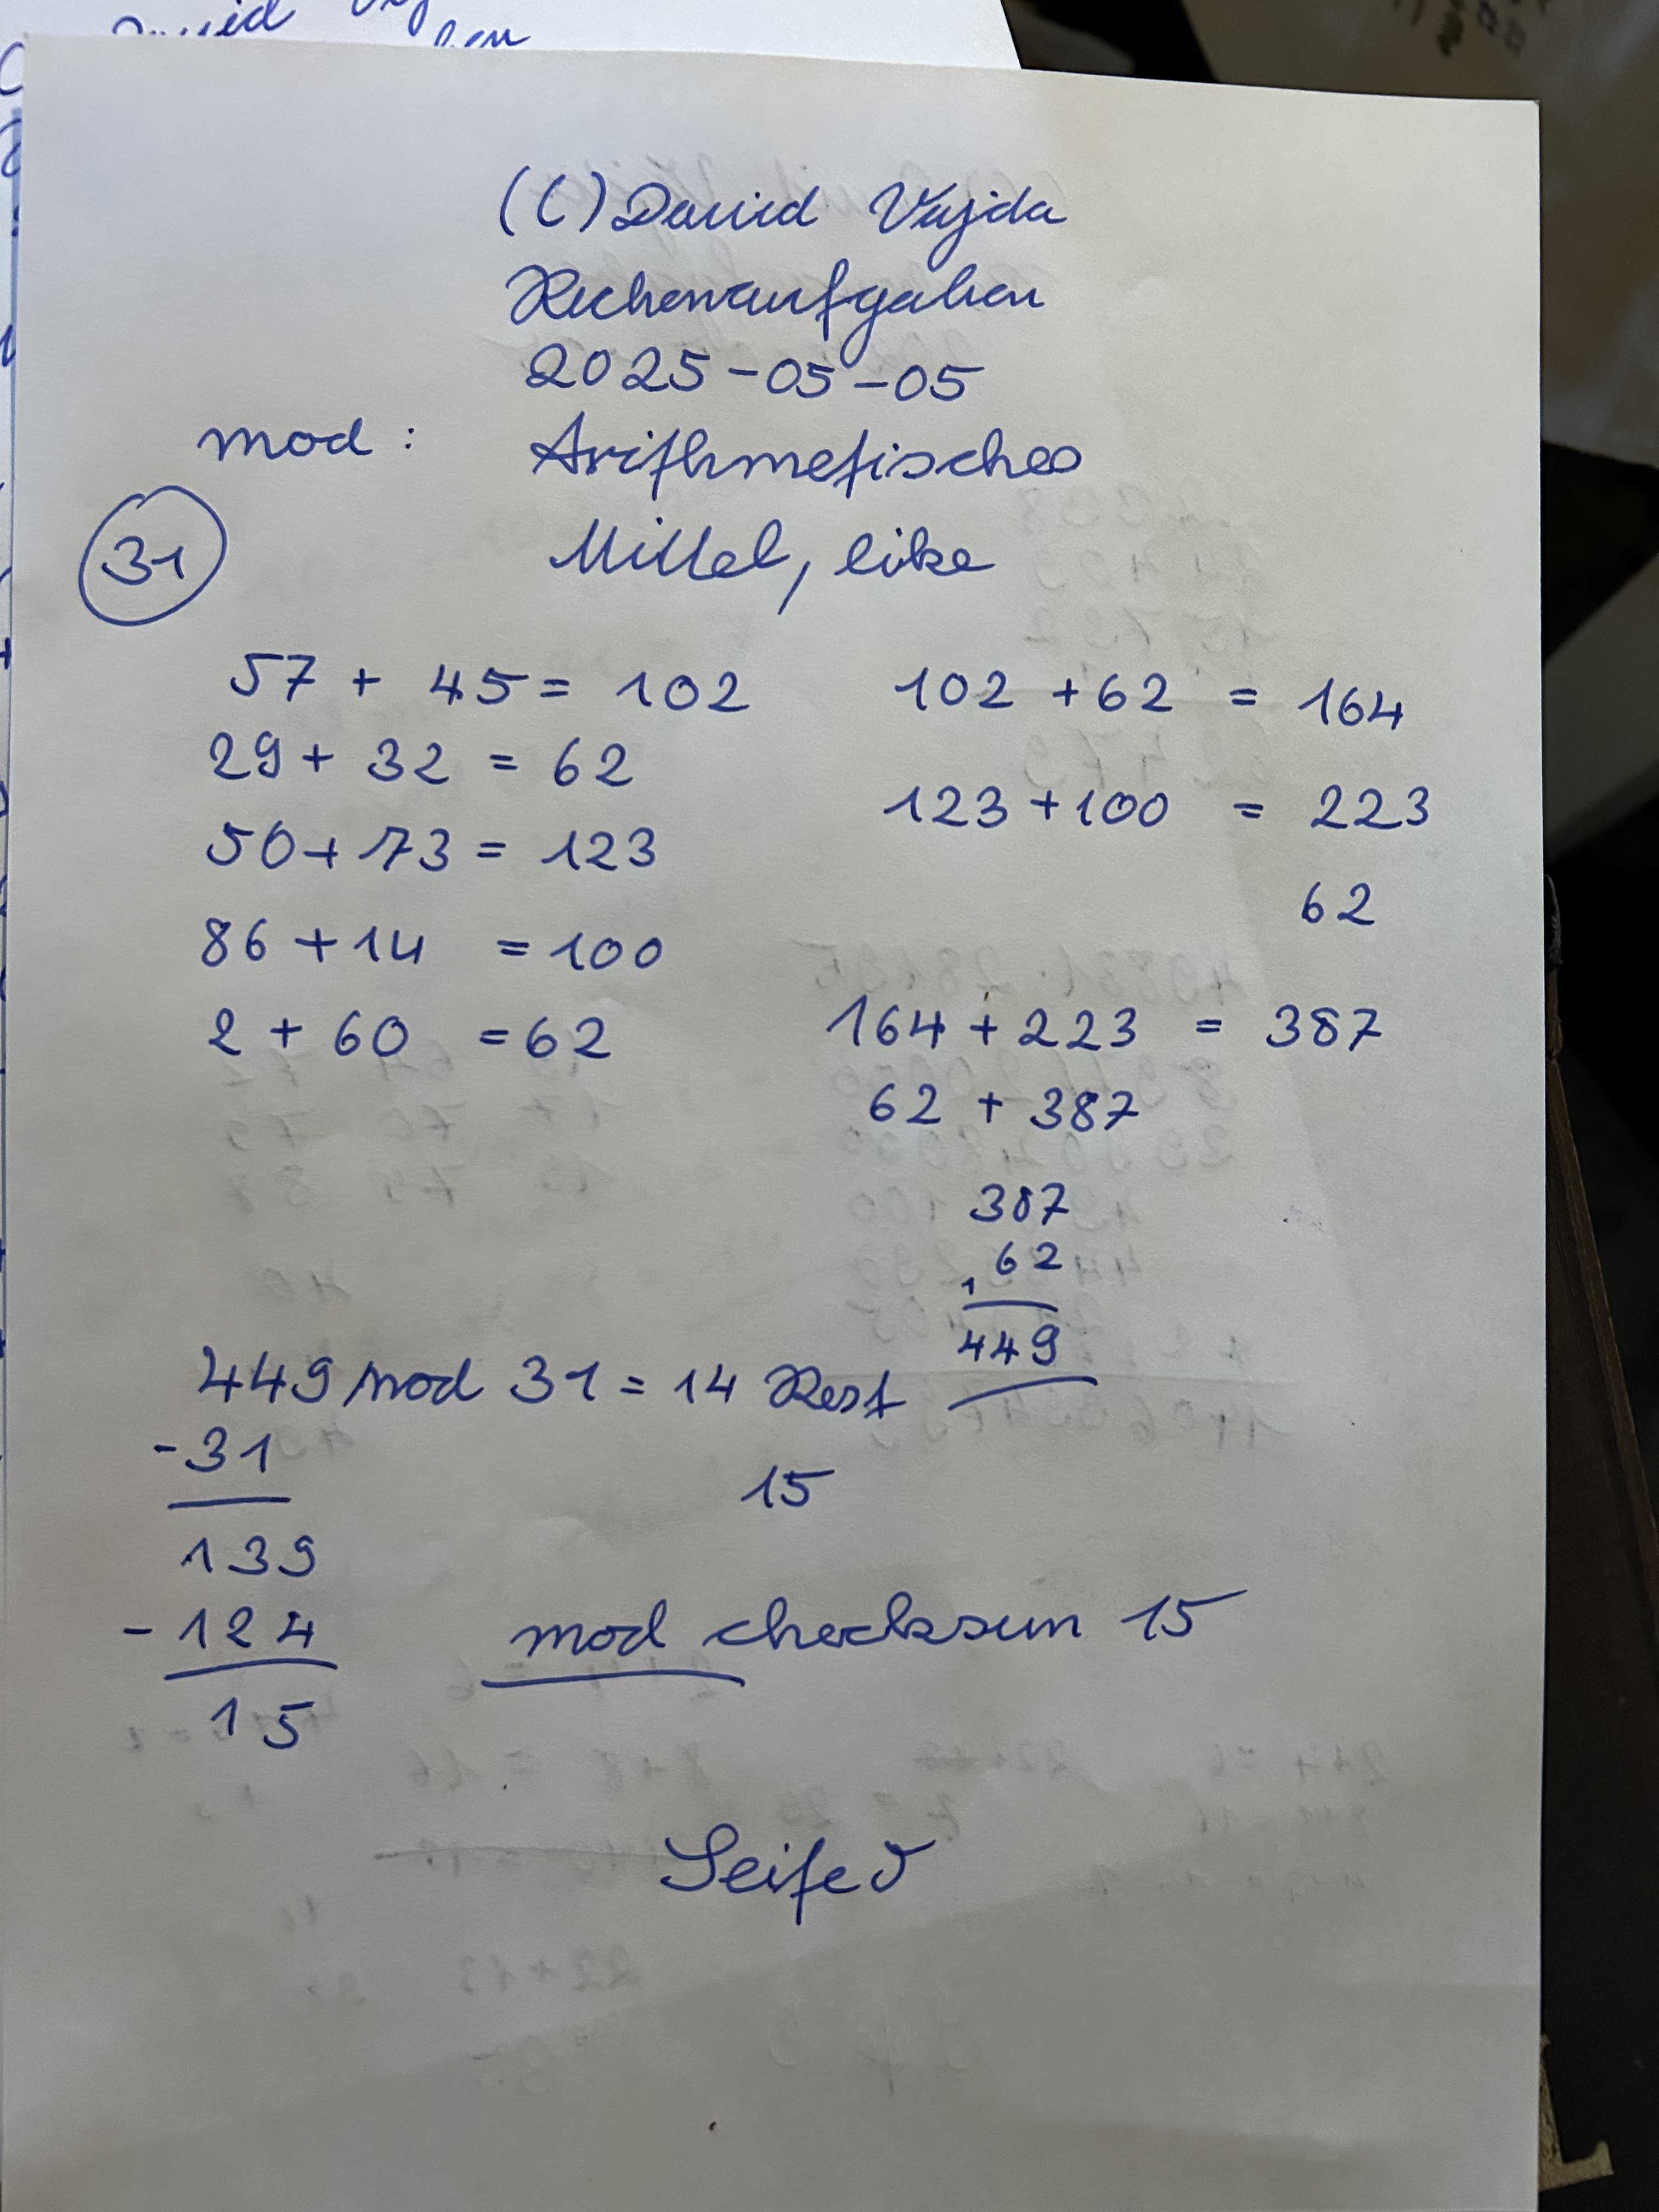 (C) David Vajda
Rechenaufgaben
2025-05-05
mod: Arithmetisches
31 Mittel, like
57 + 45 = 102
29 + 32 = 62
50 + 73 = 123
86 + 14 = 100
2 + 60 = 62
102 + 62 = 164
123 + 100 = 223
62
164 + 223 = 387
62 + 387
387
62
1
449
449 mod 31 = 14 Rest
15
-31
139
-124
15
mod checksum 15